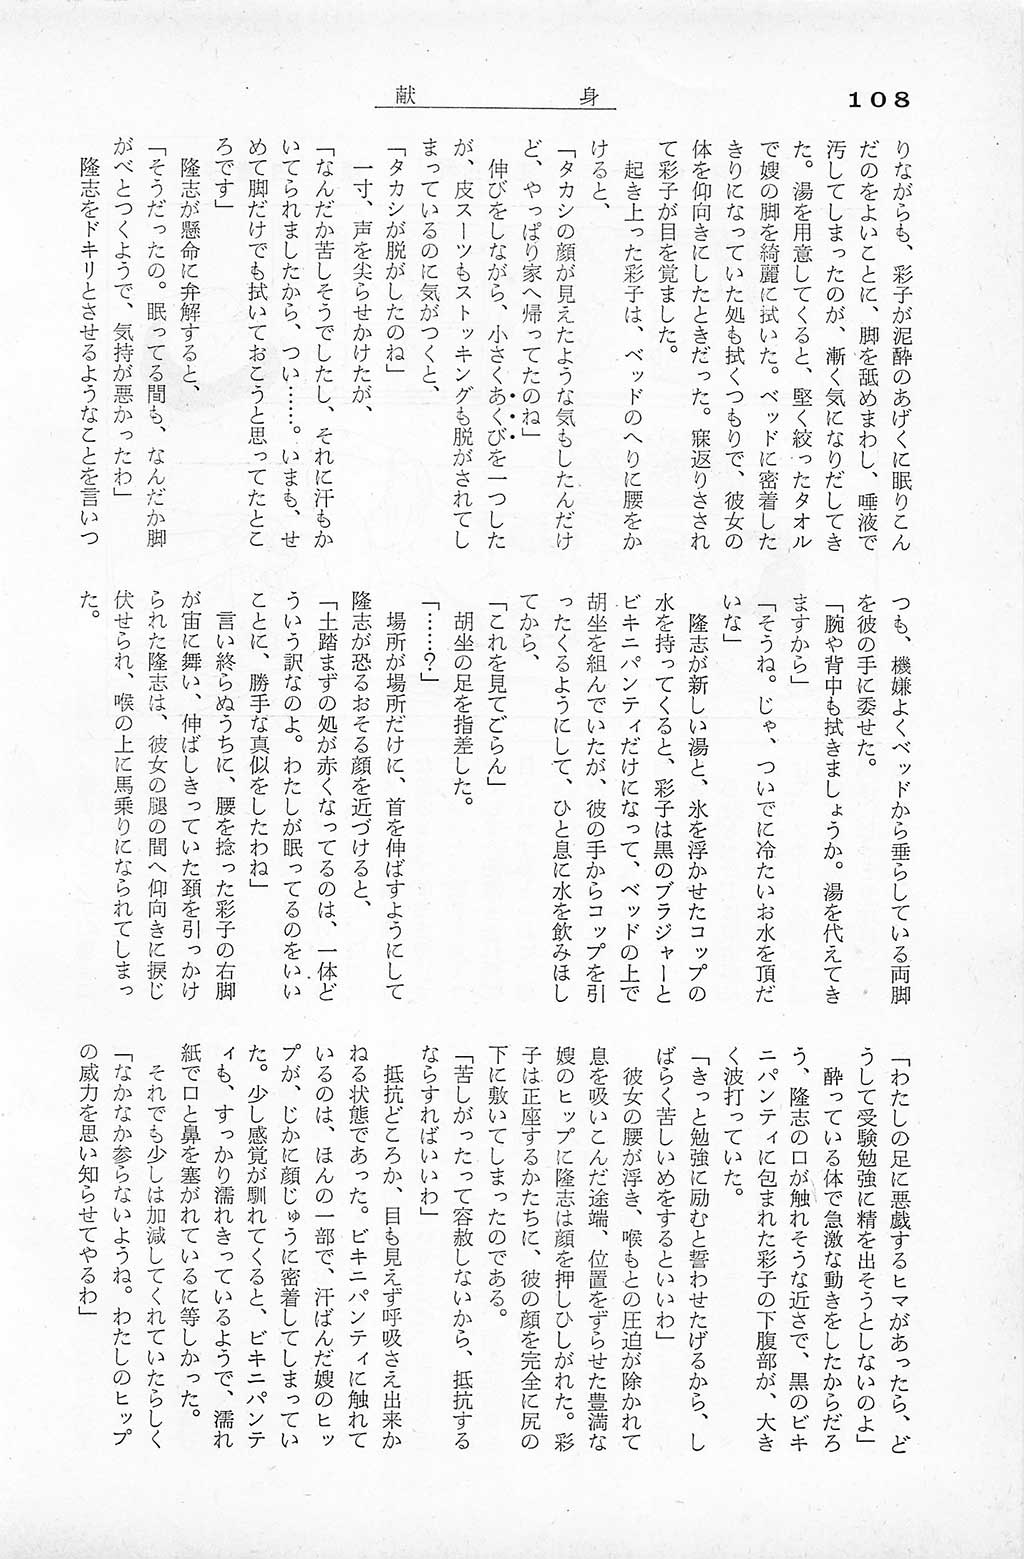 108
献身
りながらも、彩子が泥酔のあげくに眠りこん
だのをよいことに、脚を舐めまわし、唾液で
汚してしまったのが、漸く気になりだしてき
た。湯を用意してくると、堅く絞ったタオル
で嫂の脚を綺麗に拭いた。ベッドに密着した
きりになっていた処も拭くつもりで、彼女の
体を仰向きにしたときだった。寐返りさされ
て彩子が目を覚ました。
起き上った彩子は、ベッドのへりに腰をか
けると、
「タカシの顔が見えたような気もしたんだけ
ど、やっぱり家へ帰ってたのね」
伸びをしながら、小さくあくびを一つした
が、皮スーツもストッキングも脱がされてし
まっているのに気がつくと、
「タカシが脱がしたのね」
一寸、声を尖らせかけたが、
「なんだか苦しそうでしたし、それに汗もか
いてられましたから、つい……。いまも、せ
めて脚だけでも拭いておこうと思ってたとこ
ろです」
隆志が懸命に弁解すると、
「そうだったの。眠ってる間も、なんだか脚
がべとつくようで、気持が悪かったわ」
隆志をドキリとさせるようなことを言いつ
つも、機嫌よくベッドから垂らしている両脚
を彼の手に委せた。
「腕や背中も拭きましょうか。湯を代えてき
ますから」
「そうね。じゃ、ついでに冷たいお水を頂だ
いな」
隆志が新しい湯と、氷を浮かせたコップの
水を持ってくると、彩子は黒のブラジャーと
ビキニパンティだけになって、ベッドの上で
胡坐を組んでいたが、彼の手からコップを引
ったくるようにして、ひと息に水を飲みほし
てから、
「これを見てごらん」
胡坐の足を指差した。
「……？」
場所が場所だけに、首を伸ばすようにして
隆志が恐るおそる顔を近づけると、
「土踏まずの処が赤くなってるのは、一体ど
ういう訳なのよ。わたしが眠ってるのをいい
ことに、勝手な真似をしたわね」
言い終らぬうちに、腰を捻った彩子の右脚
が宙に舞い、伸ばしきっていた頚を引っかけ
られた隆志は、彼女の腿の間へ仰向きに捩じ
伏せられ、喉の上に馬乗りになられてしまっ
た。
「わたしの足に悪戯するヒマがあったら、ど
うして受験勉強に精を出そうとしないのよ」
酔っている体で急激な動きをしたからだろ
う、隆志の口が触れそうな近さで、黒のビキ
ニパンティに包まれた彩子の下腹部が、大き
く波打っていた。
「きっと勉強に励むと誓わせたげるから、し
ばらく苦しいめをするといいわ」
彼女の腰が浮き、喉もとの圧迫が除かれて
息を吸いこんだ途端、位置をずらせた豊満な
嫂のヒップに隆志は顔を押しひしがれた。彩
子は正座するかたちに、彼の顔を完全に尻の
下に敷いてしまったのである。
「苦しがったって容赦しないから、抵抗する
ならすればいいわ」
抵抗どころか、目も見えず呼吸さえ出来か
ねる状態であった。ビキニパンティに触れて
いるのは、ほんの一部で、汗ばんだ嫂のヒッ
プが、じかに顔じゅうに密着してしまってい
た。少し感覚が馴れてくると、ビキニパンテ
ィも、すっかり濡れきっているようで、濡れ
紙で口と鼻を塞がれているに等しかった。
それでも少しは加減してくれていたらしく
「なかなか参らないようね。わたしのヒップ
の威力を思い知らせてやるわ」